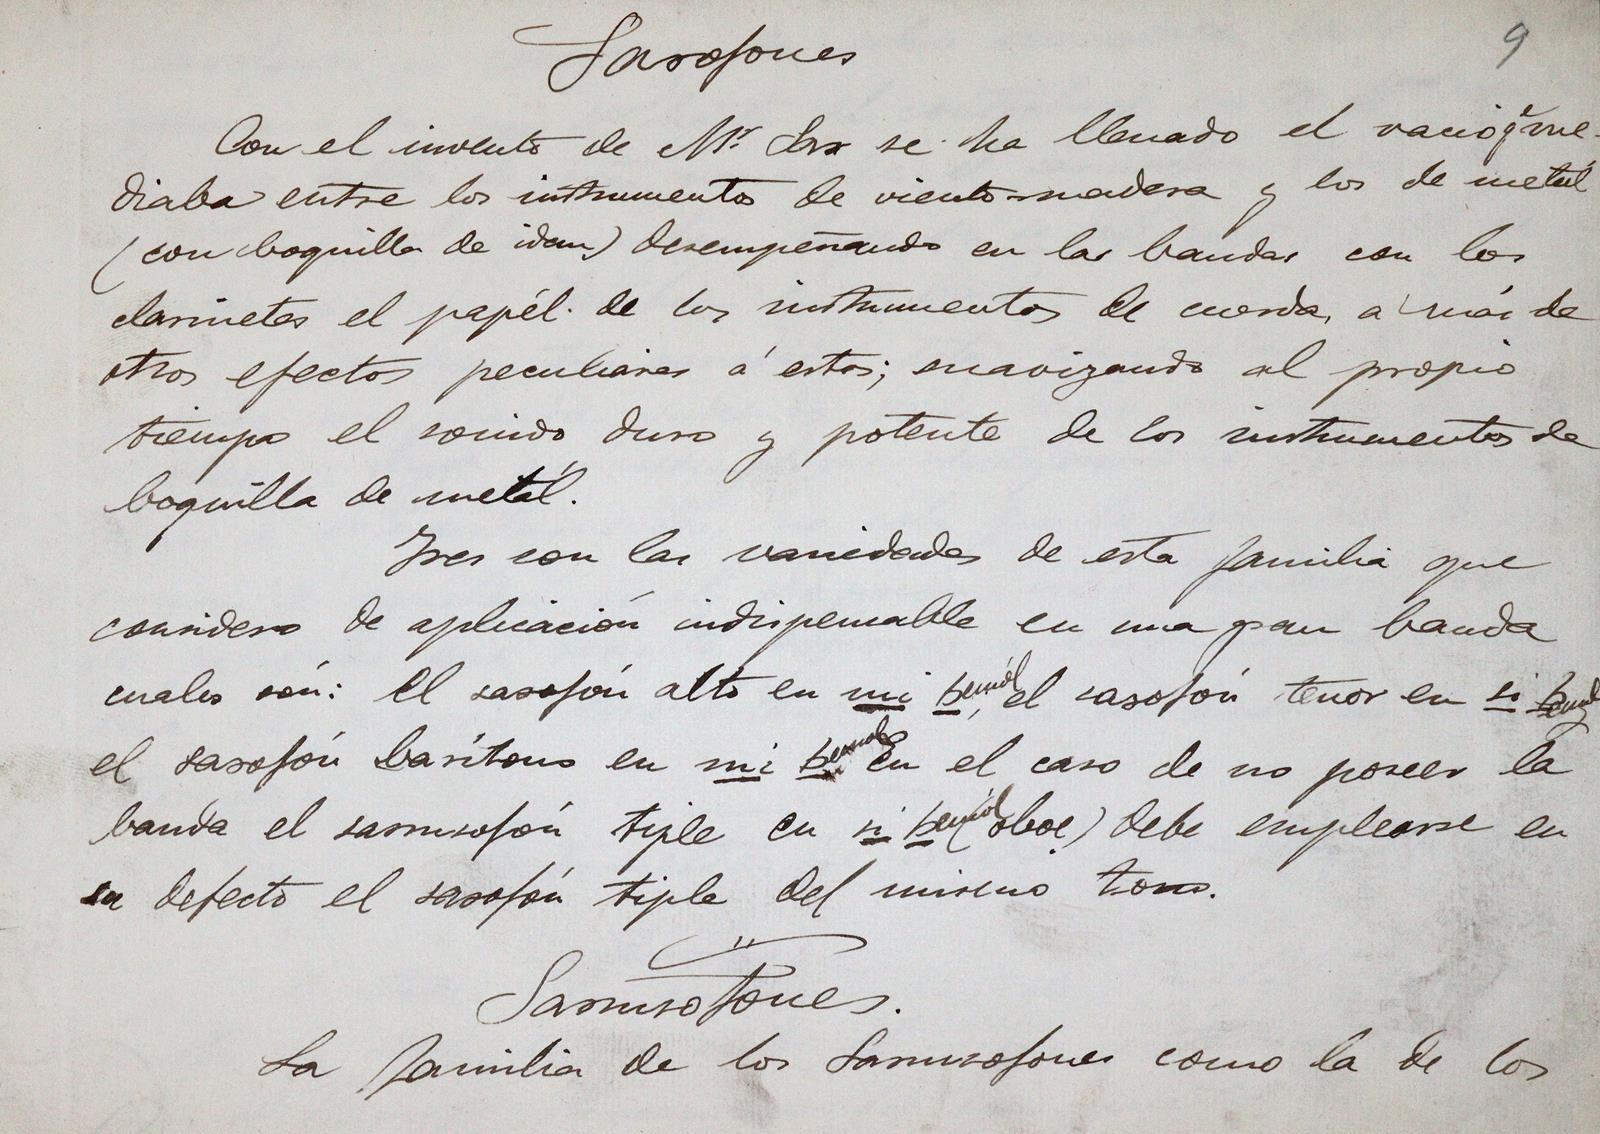 Saxofones
9
Con el invento de Mr. Sax se ha llenado el vacio q.e me-
diaba entre los instrumentos de viento-madera y los de metál
(con boquilla de idem) desempeñando en las bandas con los
clarinetes el papél de los instrumentos de cuerda, a más de
otros efectos peculiares á estos; suavizando al propio
tiempo el sonido duro y potente de los instrumentos de
boquilla de metál.
Tres son las variedades de esta familia que
considero de aplicación indispensable en una gran banda
cuales són: el saxofón alto en mi bemól, el saxofón tenor en si bemol
el saxofón barítono en mi bemol. En el caso de no poseer la
banda el sarrusofón tiple en si bemól (oboe) debe emplearse en
su defecto el saxofón tiple del mismo tono.
Sarrusofones.
La familia de los Sarrusofones como la de los